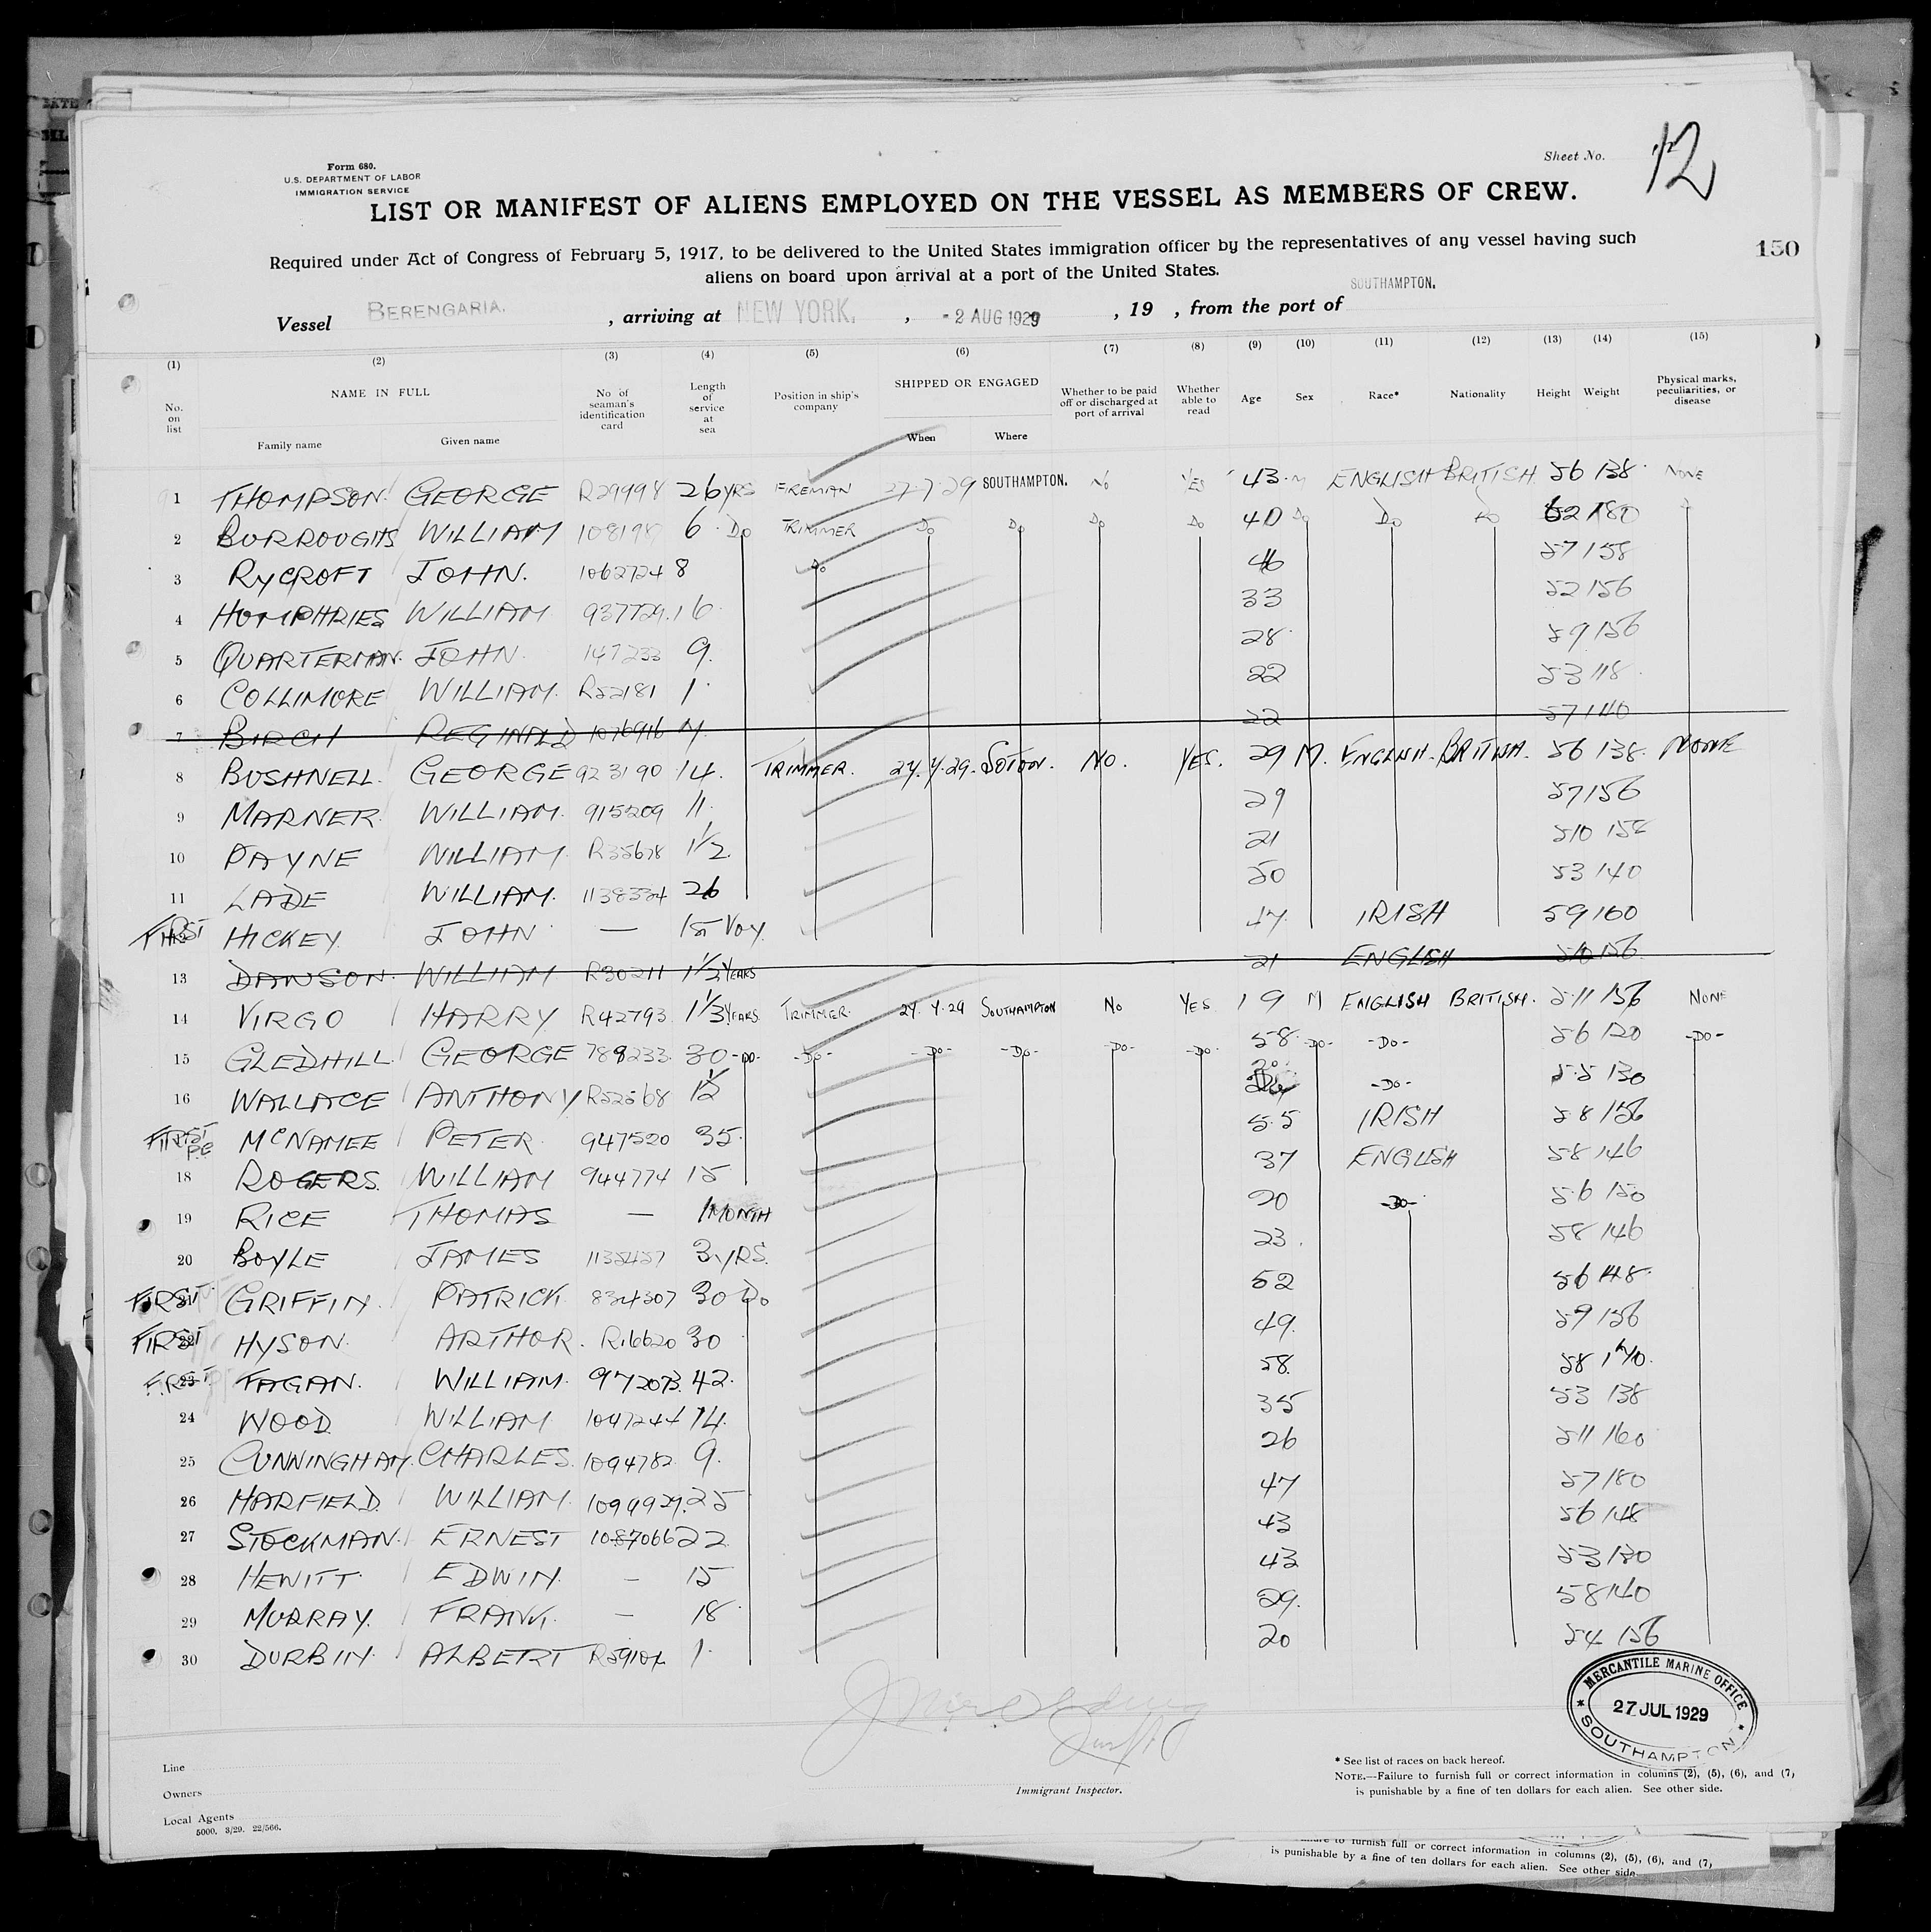 Form 680.
U.S. DEPARTMENT OF LABOR
IMMIGRATION SERVICE
Sheet No. 12
LIST OR MANIFEST OF ALIENS EMPLOYED ON THE VESSEL AS MEMBERS OF CREW.
Required under Act of Congress of February 5, 1917, to be delivered to the United States immigration officer by the representatives of any vessel having such
aliens on board upon arrival at a port of the United States.
150
Vessel BERENGARIA. , arriving at NEW YORK. , - 2 AUG 1929 , 19 , from the port of SOUTHAMPTON.
(1) (2) (3) (4) (5) (6) (7) (8) (9) (10) (11) (12) (13) (14) (15)
No. on list NAME IN FULL Family name Given name No. of seaman's identification card Length of service at sea Position in ship's company SHIPPED OR ENGAGED When Where Whether to be paid off or discharged at port of arrival Whether able to read Age Sex Race* Nationality Height Weight Physical marks, peculiarities, or disease
1 THOMPSON GEORGE R29998 26 YRS FIREMAN 27.7.29 SOUTHAMPTON. No YES 43 M ENGLISH BRITISH 56 138 NONE
2 BURROUGHS WILLIAM 6 Do TRIMMER Do Do Do Do 40 Do Do Do 62 180
3 RYCROFT JOHN. 1062724 8 Do 46 57 158
4 HUMPHRIES WILLIAM 937729 16 33 52 156
5 QUARTERMAN. JOHN 147233 9. 28 59 156
6 COLLIMORE WILLIAM. R52181 1 22 53 118
7 BIRCH REGINALD 1076916 7. 22 57 140
8 BUSHNELL. GEORGE 923190 14. TRIMMER. 27.7.29. SOTON. NO. YES. 29 M. ENGLISH. BRITISH. 56 138. NONE
9 MARNER WILLIAM. 915209 11. 29 57 156
10 PAYNE WILLIAM. R35678 1½. 21 510
11 LADE WILLIAM. 1138334 26 50 53 140
FIRST HICKEY. JOHN — 1st Voy. 47. IRISH 59 160
13 DAWSON. WILLIAM R30211 1½ YEARS 21 ENGLISH 510 156
14 VIRGO HARRY R42793 1⅓ YEARS TRIMMER. 27.7.29 SOUTHAMPTON No YES 19 M ENGLISH BRITISH. 511 156 NONE
15 GLEDHILL GEORGE 789233 30 -Do- -Do- -Do- -Do- -Do- -Do- 58 -Do- -Do- 56 120 -Do-
16 WALLACE ANTHONY R52568 1½ -Do- 55 130
FIRST McNAMEE PETER 947520 35. 55 IRISH 58 156
18 ROGERS. WILLIAM 944774 15 37 ENGLISH 58 146
19 RICE THOMAS — 1 MONTH 20 -Do- 56 150
20 BOYLE JAMES 1135457 3 YRS. 23. 58 146
FIRST GRIFFIN. PATRICK 834307 30 Do 52 56 148
FIRST HYSON. ARTHUR. R16620 30 49. 59 156
FIRST FAGAN. WILLIAM. 972073. 42. 58. 58 170.
24 WOOD. WILLIAM 1047244 14. 35 53 138
25 CUNNINGHAM. CHARLES. 1094782 9. 26 511 160
26 HARFIELD WILLIAM. 25 47 57 180
27 STOCKMAN. ERNEST 1087066 22 43 56 148
28 HEWITT EDWIN. — 15 43 53 130
29 MURRAY. FRANK. — 18 29. 58 140
30 DURBIN. ALBERT R59104 1. 20 54 156
MERCANTILE MARINE OFFICE
27 JUL 1929
SOUTHAMPTON
Line
Owners
Local Agents
5000. 3/29. 22/566.
Immigrant Inspector.
* See list of races on back hereof.
NOTE.—Failure to furnish full or correct information in columns (2), (5), (6), and (7,
is punishable by a fine of ten dollars for each alien. See other side.
to furnish full or correct information in columns (2), (5), (6), and (7,
is punishable by a fine of ten dollars for each alien. See other side